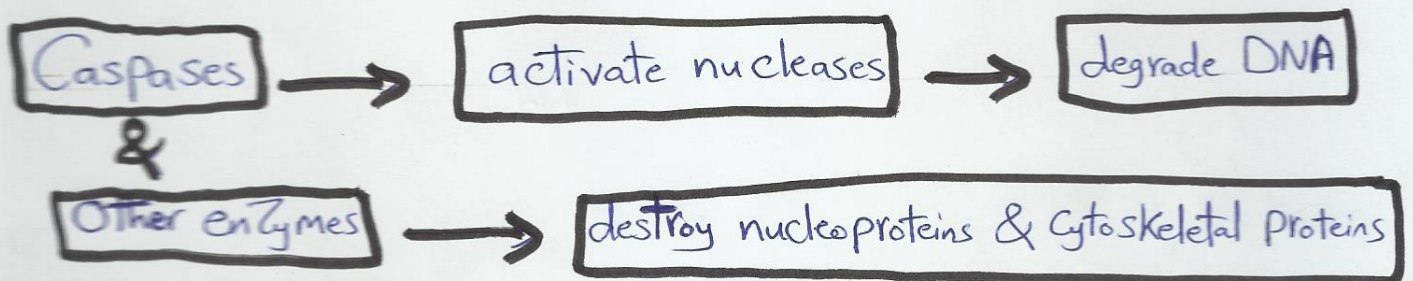 Caspases → activate nucleases → degrade DNA
&
Other enzymes → destroy nucleoproteins & Cytoskeletal Proteins